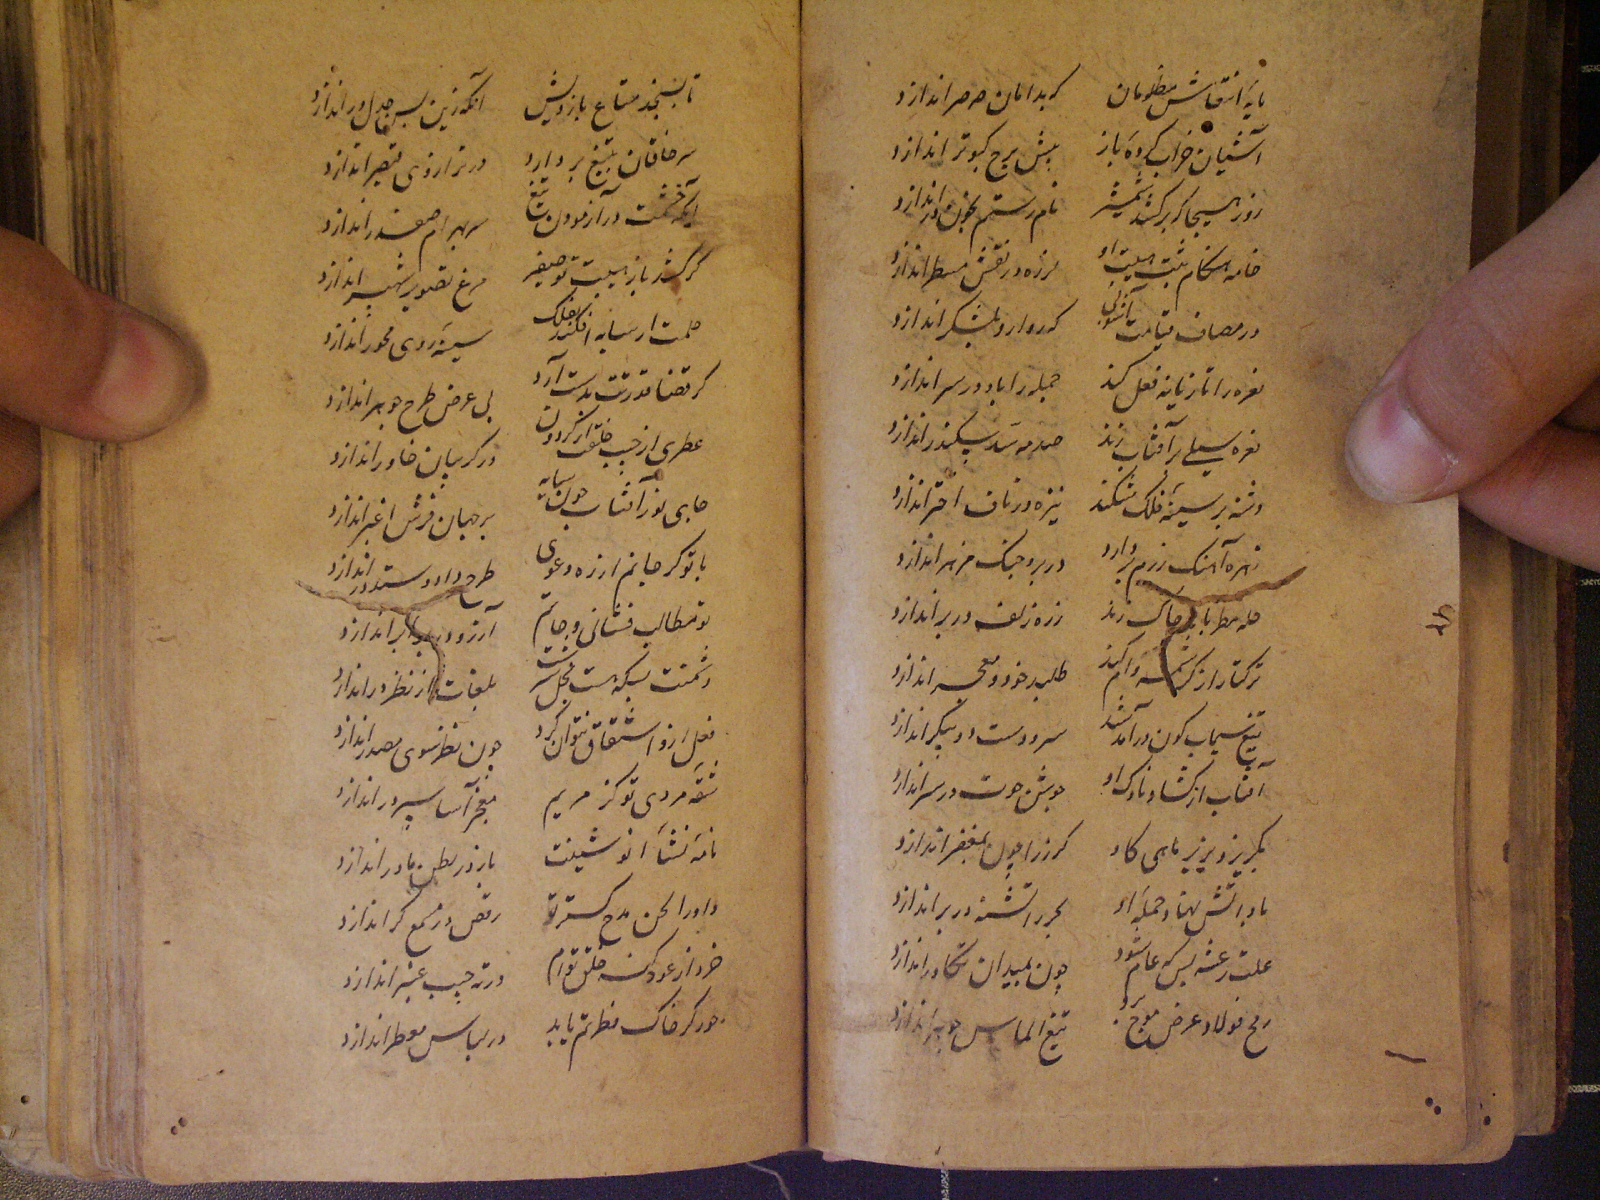 پایهٔ انتقامش مظلومان که بدامان صرصر اندازد
آشیان خراب کردهٔ باز پیش برج کبوتر اندازد
روز هیجا که برکشد شمشیر نام رستم بخون در اندازد
خامه هنگام ثبت هیبت او لرزه در نقش مسطر اندازد
در مصاف قیامت آشوبی که رود رو بلشکر اندازد
نعره را تازیانه فعل کند حمله را باد در سر اندازد
نعره سیلی بر آفتاب زند صدمه سد سکندر اندازد
دشنه بر سینهٔ فلک شکند نیزه در ناف اختر اندازد
زهره آهنگ رزم بردارد در بر و جنگ مزهر اندازد
حله مطربا بخاک زند زره زلف در بر اندازد
ترکتاز از کرشمه وام کند طلبد خود و معجر اندازد
تیغ سیماب گون درآمد شد سر و دست دو پیکر اندازد
آفتاب از گشاد ناوک او جوشن حوت در سر اندازد
بگریزد بزیر ماهی گاو گرز را چون بمغفر اندازد
باد آتش نهاد حملهٔ او بحر را تشنه در بر اندازد
علت رعشه بسکه عام شود چون بمیدان تکاور اندازد
رمح فولاد عرض موج برد تیغ الماس جوهر اندازد
تا بسنجد متاع بازویش آنکه زین پس جدل در اندازد
سر خاقان بتیغ بردارد در ترازوی قیصر اندازد
آنکه خشمت در آزمودن تیغ سر بهرام صفدر اندازد
گر کشد باز هیبت توصیفه مرغ تصویر شهپر اندازد
حلمت ار سایه افکند بفلک سینهٔ روی محور اندازد
گر قضا قدرتت بدست آرد بی عرض طرح جوهر اندازد
عطری از جیب خلقت ار گردون در گریبان خاور اندازد
جای نور آفتاب چون سایه بر جهان فرش اغبر اندازد
با تو گر حاتم از ره دعوی طرح داد و ستد در اندازد
تو مطالب فشانی و حاتم آرزو در برابر اندازد
دشمنت بسکه هست مجلس زشت بلیغات از نظر در اندازد
فعل ازو اشتقاق نتوان کرد چون نظر سوی مصدر اندازد
شقهٔ مردی تو کز مریم معجز آسا سپر در اندازد
نامهٔ نشأ انوشینت باز در بطن مادر اندازد
داورا لحن مدح گستر تو رقص در مجمع کر اندازد
خرد از عود کنه خلق توام در ته جیب عنبر اندازد
حور گر خاک فطرتم یابد در لباس معطر اندازد